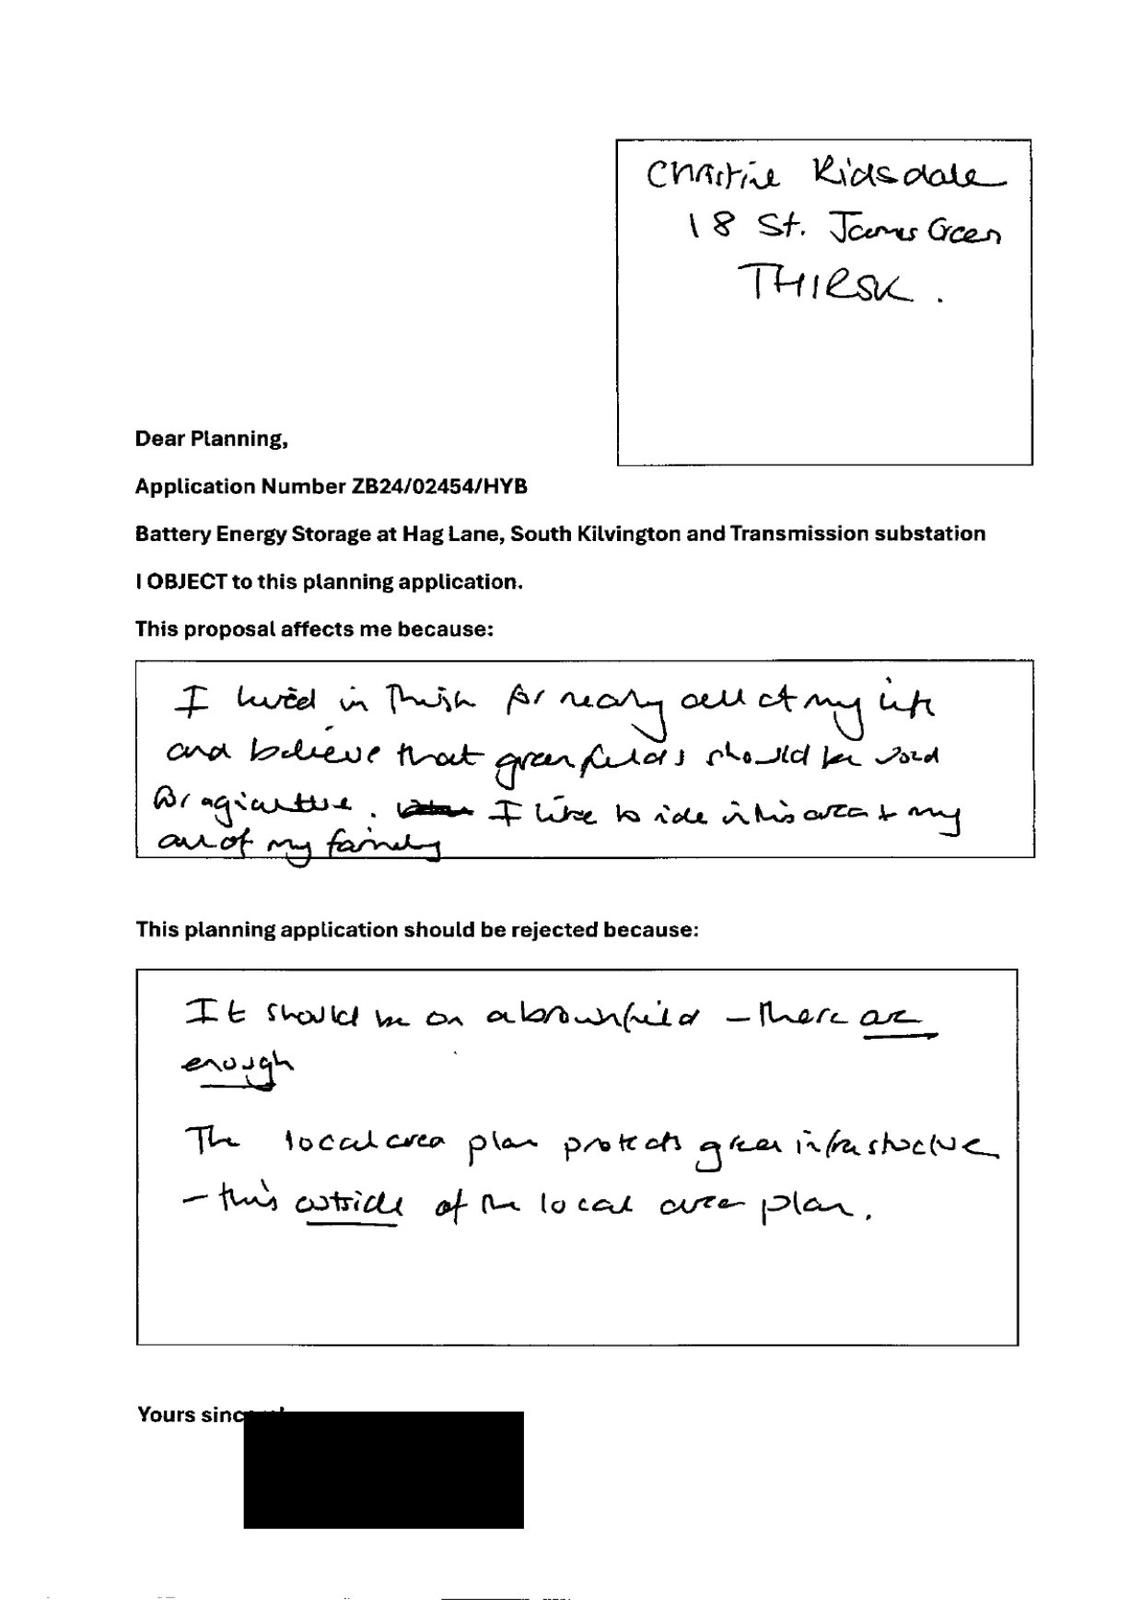 Christine Ridsdale
18 St. James Green
THIRSK.
Dear Planning,
Application Number ZB24/02454/HYB
Battery Energy Storage at Hag Lane, South Kilvington and Transmission substation
I OBJECT to this planning application.
This proposal affects me because:
I lived in Thirsk for nearly all of my life
and believe that green fields should be used
for agriculture. I like to ride in this area + my
all of my family
This planning application should be rejected because:
It should be on a brownfield - there are
enough
The local area plan protects green infrastructure
- this outside of the local area plan.
Yours